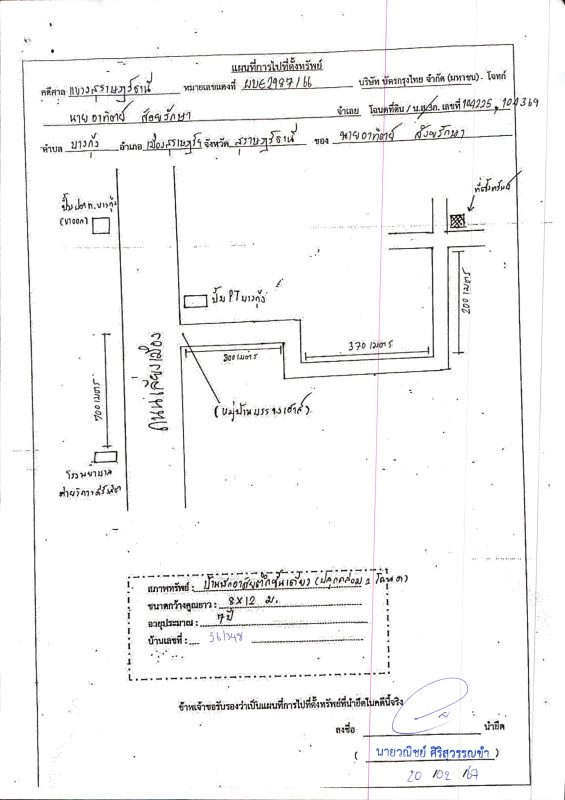 แผนที่การไปที่ตั้งทรัพย์
คดีศาล แขวงสุราษฎร์ธานี หมายเลขแดงที่ ผบE2987/66 บริษัท บัตรกรุงไทย จำกัด (มหาชน) . โจทก์
นายอาทิตย์ สังขรักษา จำเลย โฉนดที่ดิน / น.ส.3ก. เลขที่ 104225, 104369
ตำบล บางกุ้ง อำเภอ เมืองสุราษฎร์ฯ จังหวัด สุราษฎร์ธานี ของ นายอาทิตย์ สังขรักษา
ที่ตั้งทรัพย์
ปั๊ม ปตท. บางกุ้ง
(ขาออก)
ปั๊ม PT บางกุ้ง
200 เมตร
370 เมตร
300 เมตร
ถนนเลี่ยงเมือง
700 เมตร
(หมู่บ้าน
โรงพยาบาล
ค่ายวิภาวดีรังสิต
สภาพทรัพย์ : บ้านพักอาศัยตึกชั้นเดียว (ปลูกคล่อม 2 โฉนด)
ขนาดกว้างคูณยาว : 8X12 ม.
อายุประมาณ : 7 ปี
บ้านเลขที่ : 56/348
ข้าพเจ้าขอรับรองว่าเป็นแผนที่การไปที่ตั้งทรัพย์ที่นำยึดในคดีนี้จริง
ลงชื่อ นำยึด
( นายวณิชย์ ศิริสุวรรณขำ )
20 /02 /67